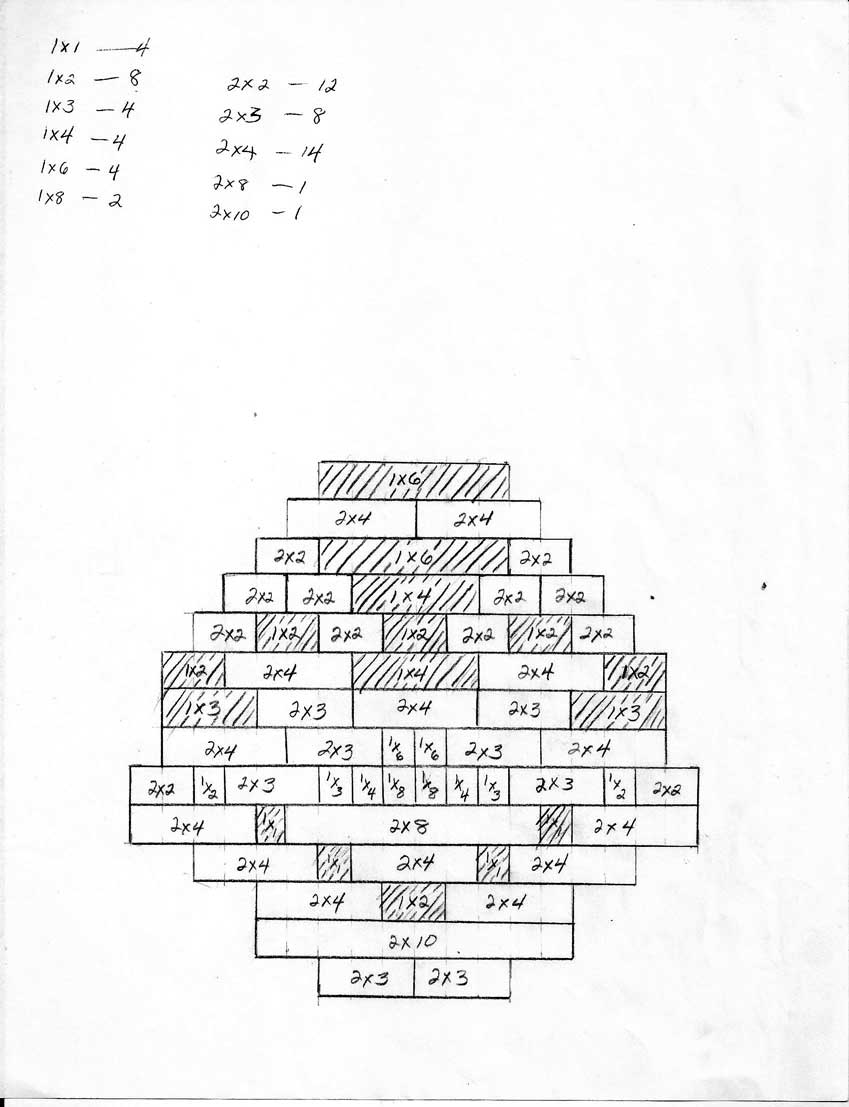 1x1 — 4
1x2 — 8
1x3 — 4
1x4 — 4
1x6 — 4
1x8 — 2
2x2 — 12
2x3 — 8
2x4 — 14
2x8 — 1
2x10 — 1
1x6
2x4 2x4
2x2 1x6 2x2
2x2 2x2 1x4 2x2 2x2
2x2 1x2 2x2 1x2 2x2 1x2 2x2
1x2 2x4 1x4 2x4 1x2
1x3 2x3 2x4 2x3 1x3
2x4 2x3 1x6 1x6 2x3 2x4
2x2 1x2 2x3 1x3 1x4 1x8 1x8 1x4 1x3 2x3 1x2 2x2
2x4 1x1 2x8 1x1 2x4
2x4 1x1 2x4 1x1 2x4
2x4 1x2 2x4
2x10
2x3 2x3